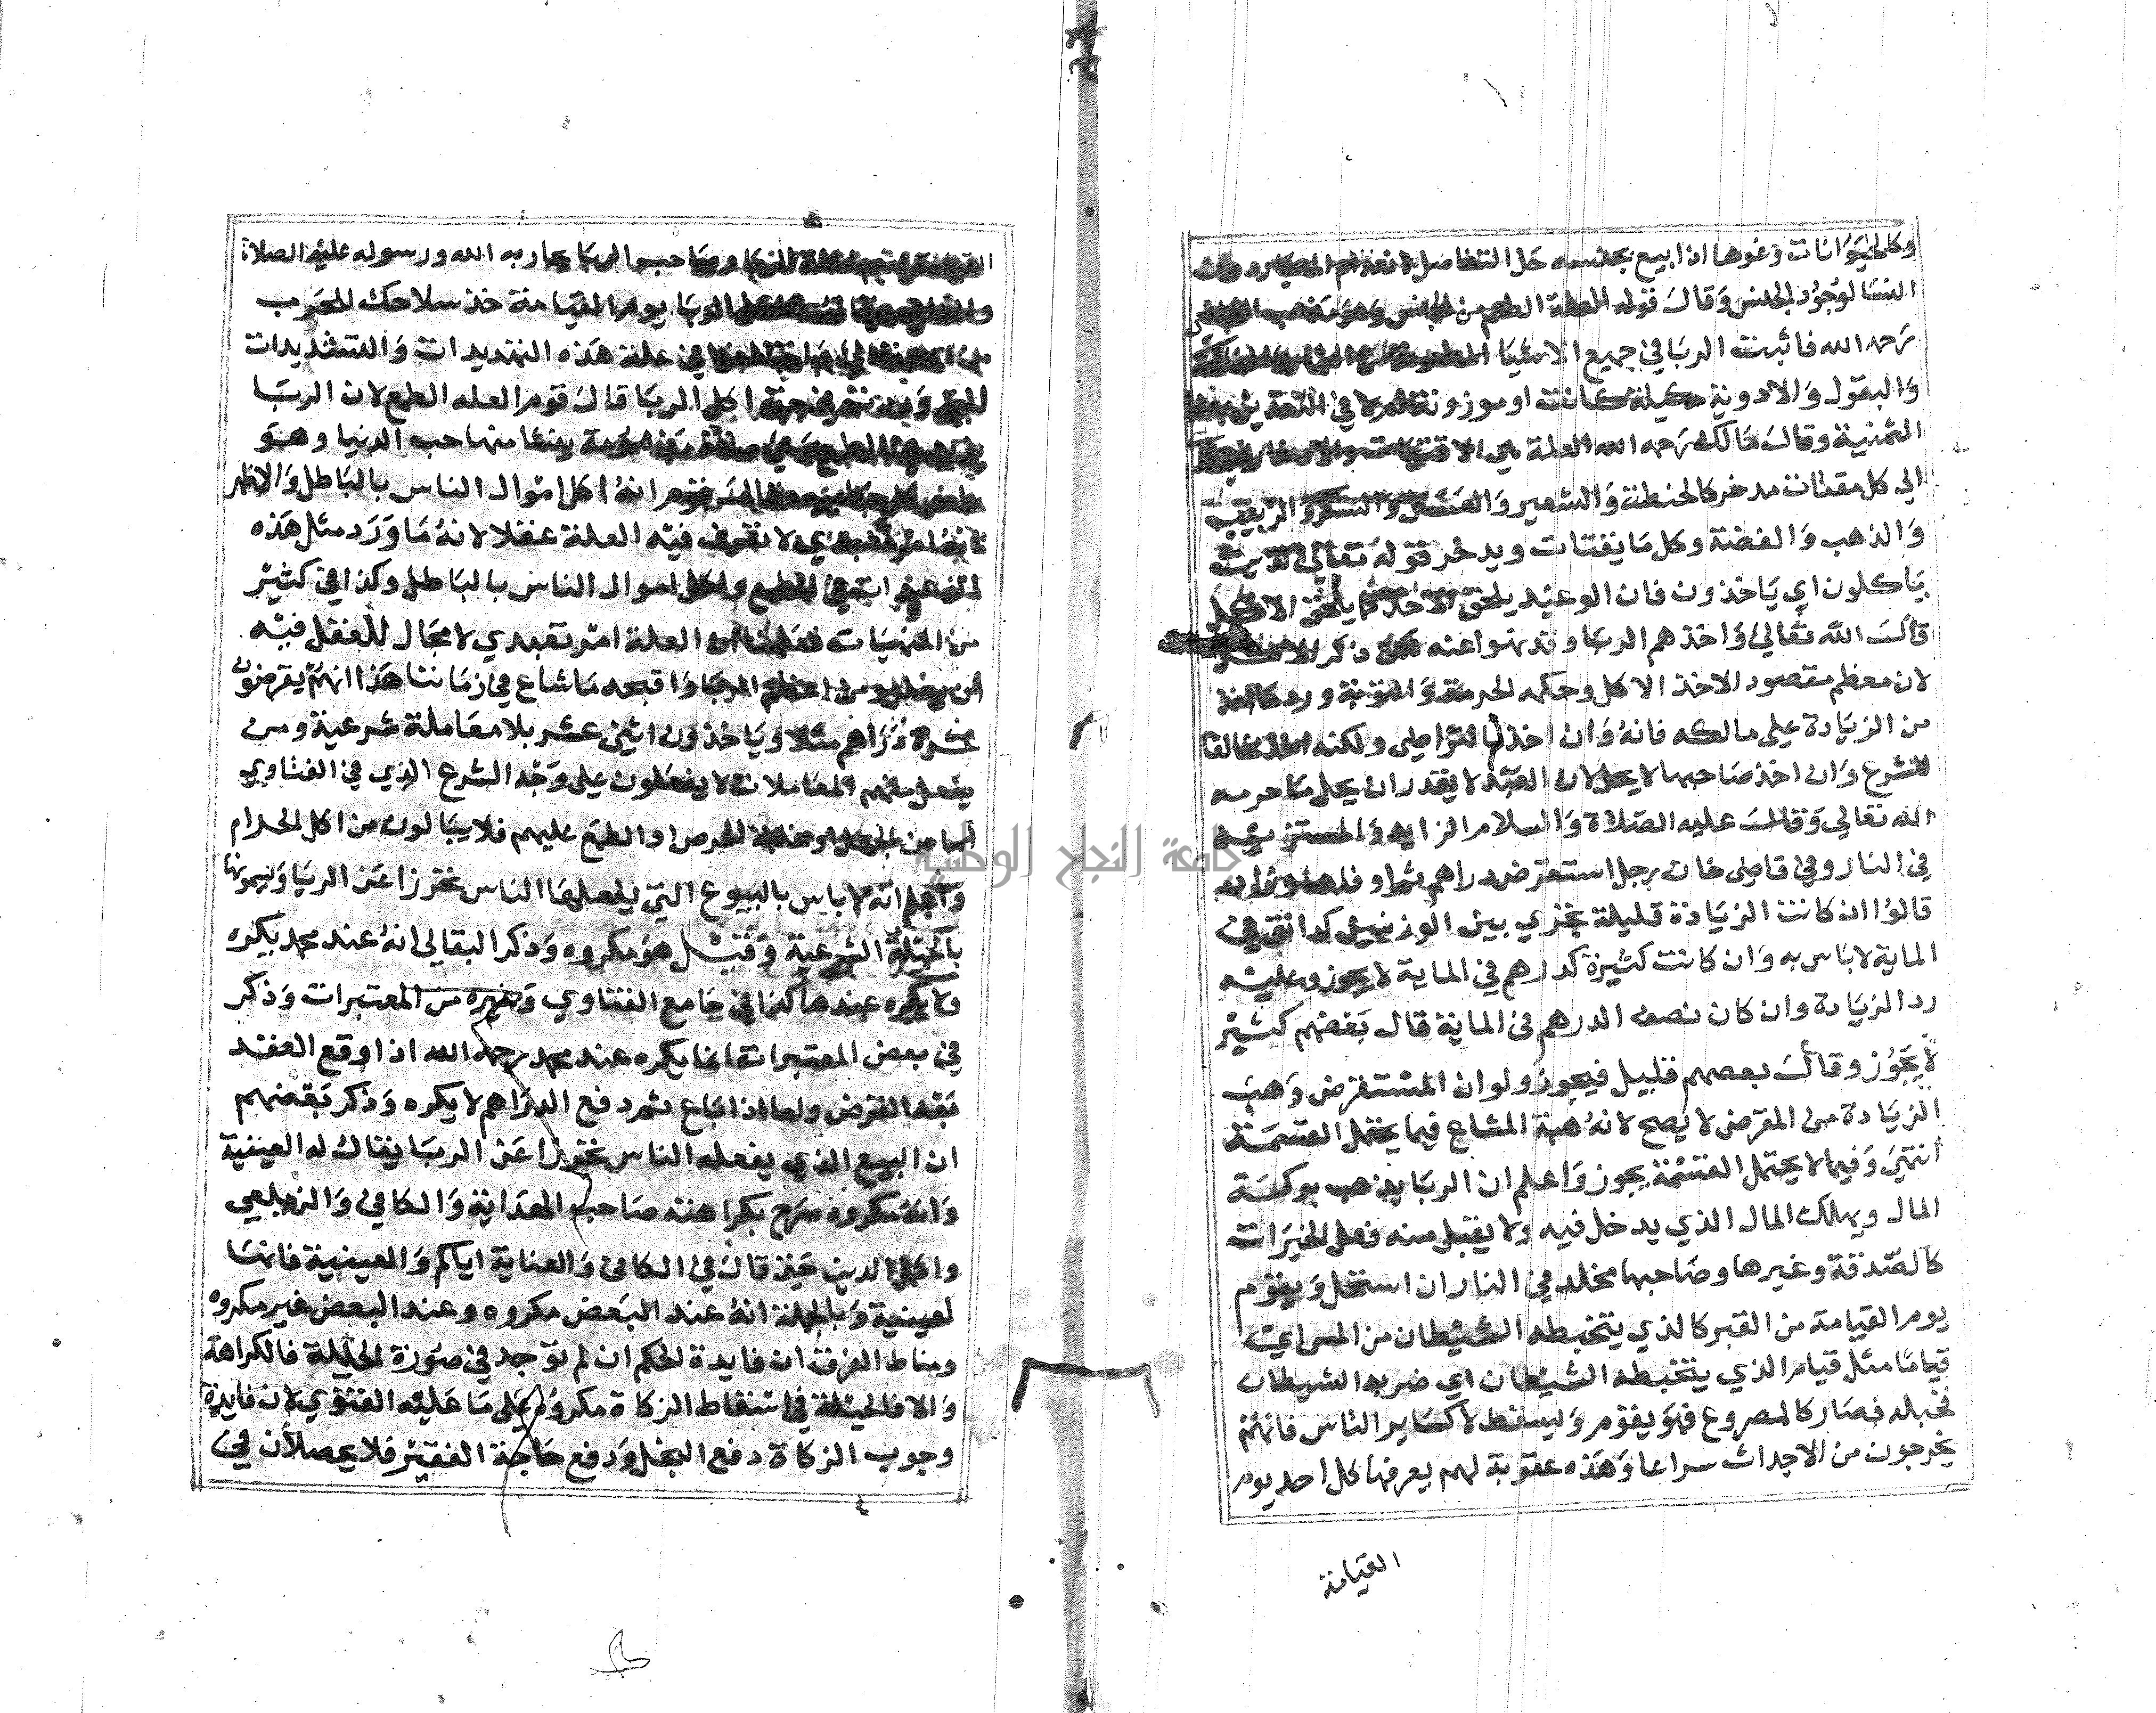 وكل الحيوانات ونحوها اذا بيع بجنسه حل التفاضل لانعدام المعيار وحرمت
النسا لوجود الجنس وقال قوله العلة الطعم من الجنس وهو مذهب
رحمه الله فاثبت الربا في جميع الاشيا المطعومة
والبقول والادوية مكيلة كانت او موزونة ام لا في النقدين
الثمنية وقال مالك رحمه الله العلة هي الاقتيات والادخار
الي كل مقتات مدخر كالحنطة والشعير والعسل والسكر والزبيب
والذهب والفضة وكل ما يقتات ويدخر قوله تعالي الذين
ياكلون اي ياخذون فان الوعيد يلحق الاخذ كما يلحق الاكل
قال الله تعالي واخذهم الربا وقد نهوا عنه ذكر الاكل
لان معظم مقصود الاخذ الاكل وحكمه الحرمة والتوبة ورد ما اخذ
من الزيادة علي مالكه فانه وان اخذ بالتراضي ولكنه مخالفا
للشرع وان اخذ صاحبها لا يحل لان العبد لا يقدر ان يحل ما حرمه
الله تعالي وقال عليه الصلاة والسلام الزايد والمستزيد
في النار وفي قاضي خان رجل استقرض دراهم
قالوا ان كانت الزيادة قليلة تجري بين الوزنين كدانق في
الماية لا باس به وان كانت كثيرة كدرهم في الماية لا يجوز وعليه
رد الزيادة وان كان نصف الدرهم في الماية قال بعضهم كثير
لا يجوز وقال بعضهم قليل فيجوز ولو ان المستقرض وهب
الزيادة من المقرض لا يصح لانه هبة المشاع فيما يحتمل القسمة
انتهي وفيما لا يحتمل القسمة يجوز واعلم ان الربا يذهب بركة
المال ويهلك المال الذي يدخل فيه ولا يقبل منه فعل الخيرات
كالصدقة وغيرها وصاحبها مخلد في النار ان استحل ويقوم
يوم القيامة من القبر كالذي يتخبطه الشيطان من المس اي
قياما مثل قيام الذي يتخبطه الشيطان اي ضربه الشيطان
فخبله فصار كالمصروع فهو يقوم ويسقط لا كساير الناس فانهم
يخرجون من الاجداث سراعا وهذه عقوبة لهم يعرفها كل احد يوم
القيامة
الربا وصاحب الربا يحاربه الله ورسوله عليه الصلاة
الربا يوم القيامة خذ سلاحك للحرب
في علة هذه التهديدات والتشديدات
اكل الربا قال قوم العله الطمع لان الربا
ينشا منها حب الدنيا وهو
قوم انه اكل اموال الناس بالباطل والاظهر
انه امر تعبدي لا نعرف فيه العلة عقلا لانه ما ورد مثل هذه
في الطمع واكل اموال الناس بالباطل وكذا في كثير
من المنهيات فعلمنا ان العلة امر تعبدي لا مجال للعقل فيه
ومن اعظم الربا واقبحه ما شاع في زماننا هذا انهم يقرضون
عشرة دراهم مثلا وياخذون اثني عشر بلا معاملة شرعية ومن
يفعل منهم المعاملات لا يفعلون علي وجه الشرع الذي في الفتاوي
اما من الجهل او غلبة الحرص او الطمع عليهم فلا يبالون من اكل الحرام
واعلم انه لا باس بالبيوع التي يفعلها الناس تحرزا عن الربا ويسمونها
بالحيلة الشرعية وقيل هو مكروه وذكر البقالي انه عند محمد يكره
ولا يكره عندهما كذا في جامع الفتاوي وغيره من المعتبرات وذكر
في بعض المعتبرات انما يكره عند محمد رحمه الله اذا وقع العقد
بعد القرض واما اذا باع ثم دفع الدراهم لا يكره وذكر بعضهم
ان البيع الذي يفعله الناس تحرزا عن الربا يقال له العينية
وانه مكروه صرح بكراهته صاحب الهداية والكافي والزيلعي
واكمل الدين حيث قال في الكافي والعناية اياكم والعينية فانها
لعينية وبالجملة انه عند البعض مكروه وعند البعض غير مكروه
ومناط الفرق ان فايدة الحكم ان لم توجد في صورة الحيلة فالكراهة
والا فالحيلة في اسقاط الزكاة مكروه علي ما عليه الفتوي لان فايدة
وجوب الزكاة دفع البخل ودفع حاجة الفقير فلا يحصلان في
جامعة النجاح الوطنية